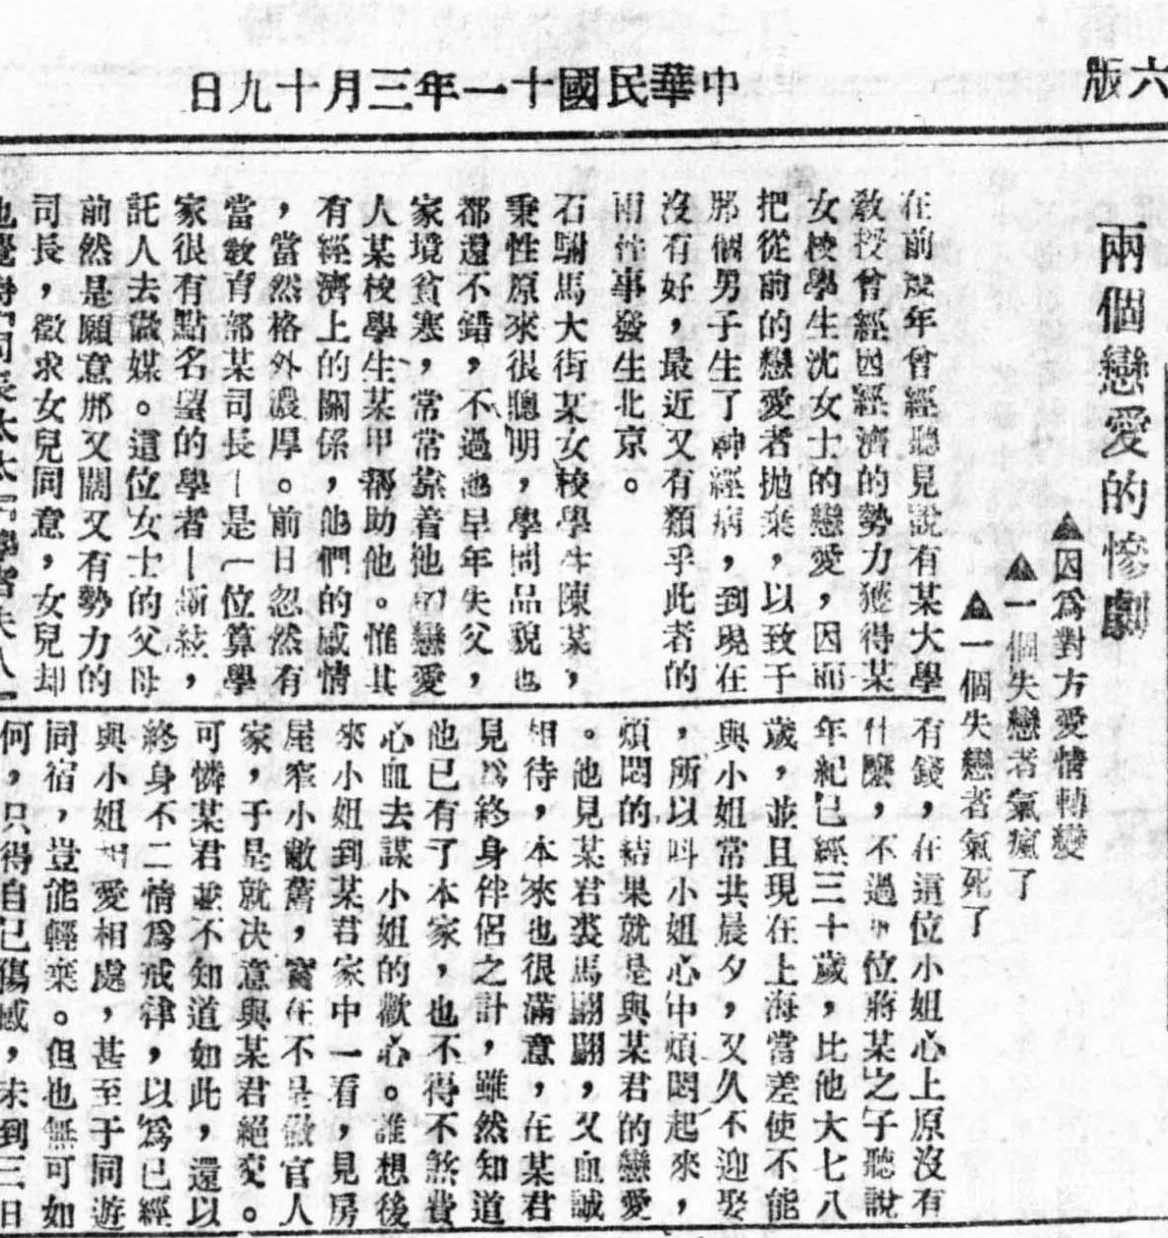 中華民國十一年三月十九日
六版
兩個戀愛的慘劇
▲因爲對方愛情轉變
▲一個失戀者氣瘋了
▲一個失戀者氣死了
在前幾年曾經聽見說有某大學
敎授曾經因經濟的勢力獲得某
女校學生沈女士的戀愛，因而
把從前的戀愛者拋棄，以致于
那個男子生了神經病，到現在
沒有好，最近又有類乎此者的
兩件事發生北京。
石駙馬大街某女校學生陳某，
秉性原來很聰明，學問品貌也
都還不錯，不過他早年失父，
家境貧寒，常常靠着他的戀愛
人某校學生某甲補助他。惟其
有經濟上的關係，他們的感情
，當然格外濃厚。前日忽然有
當敎育部某司長—是一位算學
家很有點名望的學者—斷絃，
託人去做媒。這位女士的父母
前然是願意那又闊又有勢力的
司長，徵求女兒同意，女兒却
有錢，在這位小姐心上原沒有
什麼，不過 位蔣某之子聽說
年紀已經三十歲，比他大七八
歲，並且現在上海當差使不能
與小姐常共晨夕，又久不迎娶
，所以叫小姐心中煩悶起來，
煩悶的結果就是與某君的戀愛
。他見某君裘馬翩翩，又血誠
相待，本來也很滿意，在某君
見爲終身伴侶之計，雖然知道
他已有了本家，也不得不煞費
心血去謀小姐的歡心。誰想後
來小姐到某君家中一看，見房
屋窄小敝舊，實在不是做官人
家，于是就決意與某君絕交。
可憐某君並不知道如此，還以
終身不二情爲戒律，以爲已經
與小姐相愛相處，甚至于同遊
同宿，豈能輕棄。但也無可如
何，只得自己傷感，未到三日